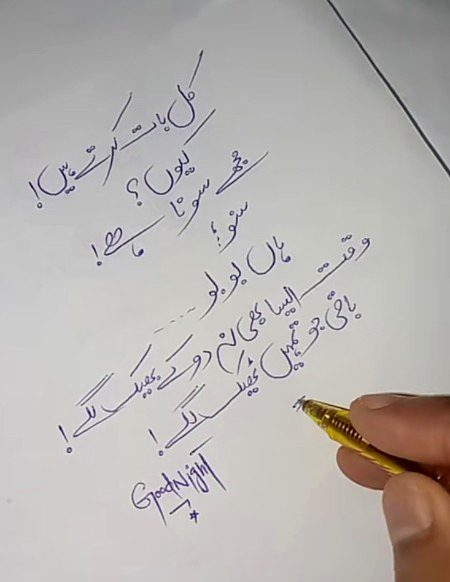 کل بات کرتے ہیں!
کیوں؟
مجھے سونا ہے!
سنو!
ہاں بولو ----
وقت ایسا بھی نہ دو کے بھیک لگے!
باقی جو تمہیں ٹھیک لگے!
Good Night